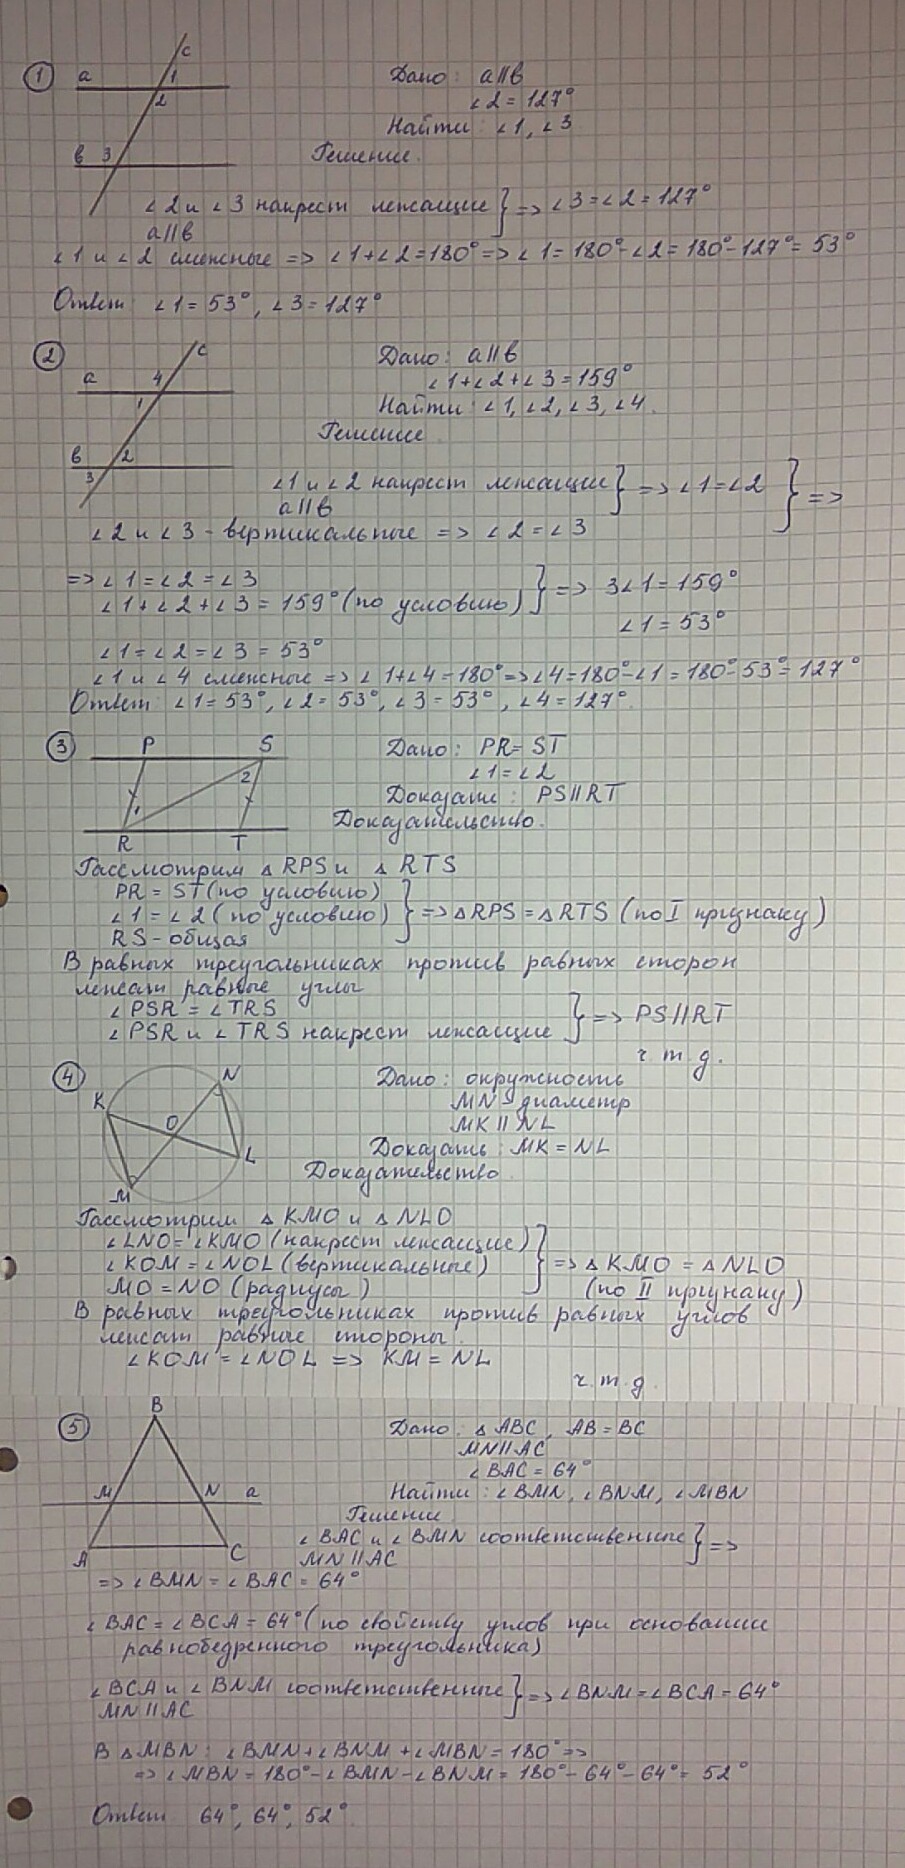 ① a c 1 2 b 3
Дано: a∥b
∠2 = 127°
Найти: ∠1, ∠3
Решение.
∠2 и ∠3 накрест лежащие } => ∠3 = ∠2 = 127°
a∥b
∠1 и ∠2 смежные => ∠1+∠2=180° => ∠1= 180°-∠2 = 180°-127° = 53°
Ответ: ∠1 = 53°, ∠3 = 127°
② a c 4 1 b 2 3
Дано: a∥b
∠1+∠2+∠3=159°
Найти: ∠1, ∠2, ∠3, ∠4.
Решение.
∠1 и ∠2 накрест лежащие } => ∠1=∠2 } =>
a∥b
∠2 и ∠3 - вертикальные => ∠2=∠3
=> ∠1=∠2=∠3
∠1+∠2+∠3 = 159° (по условию) } => 3∠1=159°
∠1 = 53°
∠1=∠2=∠3=53°
∠1 и ∠4 смежные => ∠1+∠4=180° => ∠4=180°-∠1 = 180°-53°=127°
Ответ: ∠1=53°, ∠2=53°, ∠3=53°, ∠4=127°.
③ P S 2 1 R T
Дано: PR=ST
∠1=∠2
Доказать: PS∥RT
Доказательство.
Рассмотрим △RPS и △RTS
PR = ST (по условию)
∠1=∠2 (по условию) } => △RPS = △RTS (по I признаку)
RS - общая
В равных треугольниках против равных сторон
лежат равные углы
∠PSR = ∠TRS
∠PSR и ∠TRS накрест лежащие } => PS∥RT
ч.т.д.
④ K N O L M
Дано: окружность
MN - диаметр
MK∥NL
Доказать: MK=NL
Доказательство.
Рассмотрим △KMO и △NLO
∠LNO=∠KMO (накрест лежащие)
∠KOM=∠NOL (вертикальные) } => △KMO = △NLO
MO=NO (радиусы) (по II признаку)
В равных треугольниках против равных углов
лежат равные стороны.
∠KOM = ∠NOL => KM = NL
ч.т.д.
⑤ B M N a A C
Дано: △ABC, AB=BC
MN∥AC
∠BAC = 64°
Найти: ∠BMN, ∠BNM, ∠MBN
Решение.
∠BAC и ∠BMN соответственные } =>
MN∥AC
=> ∠BMN=∠BAC = 64°
∠BAC=∠BCA = 64° (по свойству углов при основании
равнобедренного треугольника)
∠BCA и ∠BNM соответственные } => ∠BNM=∠BCA=64°
MN∥AC
В △MBN: ∠BMN+∠BNM+∠MBN=180° =>
=> ∠MBN = 180°-∠BMN-∠BNM = 180°-64°-64° = 52°
Ответ: 64°, 64°, 52°.